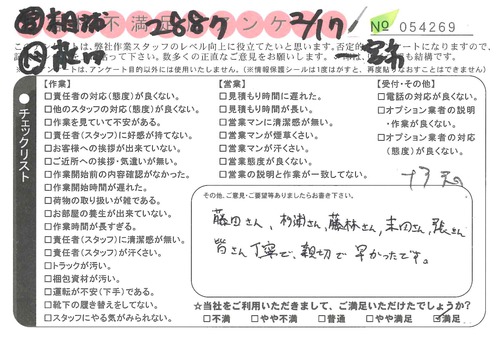 営 相浦 不満足アンケート 2887 2/17 № 054269
このアンケートは、弊社作業スタッフのレベル向上に役立てたいと思います。否定的
下さい。数多くの正直なご意見をお願いします。 も結構です。
アンケートは、アンケート目的以外には使用いたしません。(※情報保護シールは1度がはすと、再度貼りなおすことはできません)
チェックリスト
【作業】
□責任者の対応(態度)が良くない。
□他のスタッフの対応(態度)が良くない。
□作業を見ていて不安がある。
□責任者(スタッフ)に好感が持てない。
□お客様への挨拶が出来ていない。
□ご近所への挨拶・気遣いが無い。
□作業開始前の内容確認がなかった。
□作業開始時間が遅れた。
□荷物の取り扱いが雑である。
□お部屋の養生が出来ていない。
□作業時間が長すぎる。
□責任者(スタッフ)に清潔感が無い。
□責任者(スタッフ)が汗くさい。
□トラックが汚い。
□梱包資材が汚い。
□運転が不安(下手)である。
□靴下の履き替えをしてない。
□スタッフにやる気がみられない。
【営業】
□見積もり時間に遅れた。
□見積もり時間が長い。
□営業マンに清潔感が無い。
□営業マンが煙草くさい。
□営業マンが汗くさい。
□営業態度が良くない。
□営業の説明と作業が一致してない。
【受付・その他】
□電話の対応が良くない。
□オプション業者の説明
・作業が良くない。
□オプション業者の対応
(態度)が良くない。
その他、ご意見・ご要望等ありましたらお書き下さい。
藤田さん、杉浦さん、藤林さん、末田さん、張さん
皆さん丁寧で、親切で早かったです。
☆当社をご利用いただきまして、ご満足いただけたでしょうか?
□不満 □やや不満 □普通 □やや満足 ☑満足